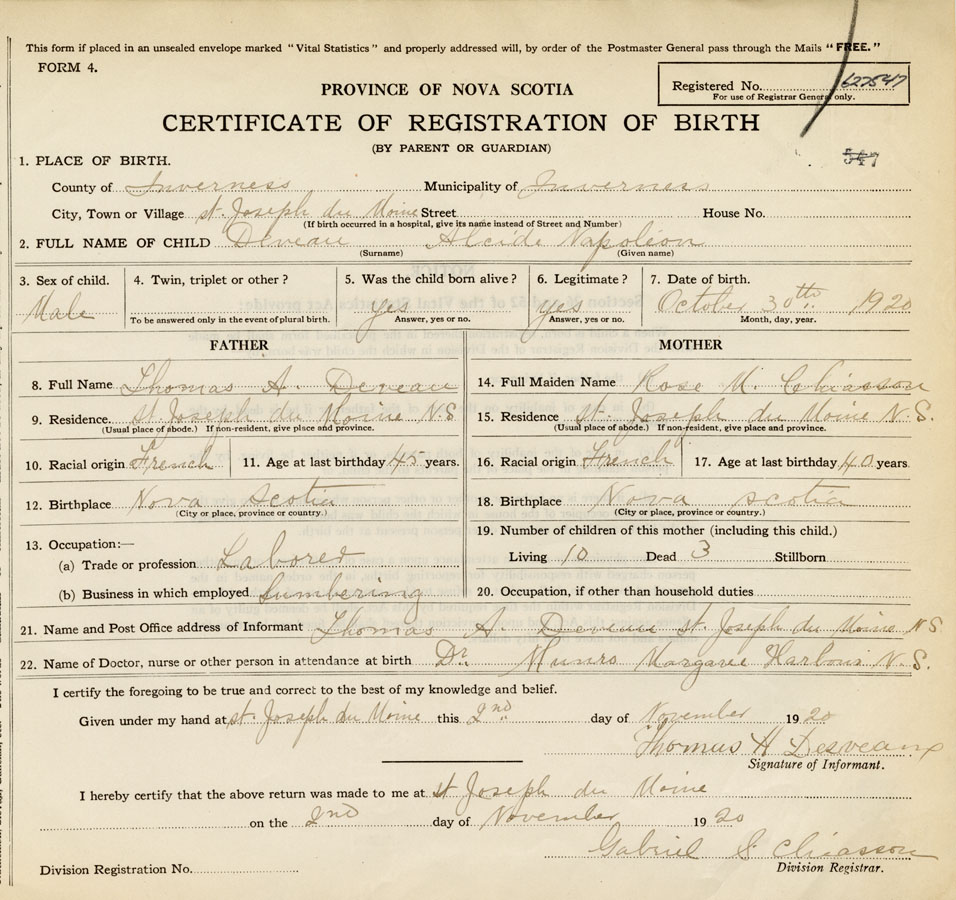 This form if placed in an unsealed envelope marked "Vital Statistics" and properly addressed will, by order of the Postmaster General pass through the Mails "FREE."
FORM 4.
Registered No. 627547
For use of Registrar General only.
PROVINCE OF NOVA SCOTIA
CERTIFICATE OF REGISTRATION OF BIRTH
(BY PARENT OR GUARDIAN)
547
1. PLACE OF BIRTH.
County of Inverness Municipality of Inverness
City, Town or Village St. Joseph du Moine Street House No.
(If birth occurred in a hospital, give its name instead of Street and Number)
2. FULL NAME OF CHILD Deveau Alcide Napoléon
(Surname) (Given name)
3. Sex of child. 4. Twin, triplet or other? 5. Was the child born alive? 6. Legitimate? 7. Date of birth.
Male yes yes October 30th 1920
To be answered only in the event of plural birth. Answer, yes or no. Answer, yes or no. Month, day, year.
FATHER MOTHER
8. Full Name Thomas A. Deveau 14. Full Maiden Name Rose M. Chiasson
9. Residence. St. Joseph du Moine N.S 15. Residence St. Joseph du Moine N.S.
(Usual place of abode.) If non-resident, give place and province. (Usual place of abode.) If non-resident, give place and province.
10. Racial origin French 11. Age at last birthday 45 years. 16. Racial origin French 17. Age at last birthday 40 years.
12. Birthplace Nova Scotia 18. Birthplace Nova Scotia
(City or place, province or country.) (City or place, province or country.)
13. Occupation:— 19. Number of children of this mother (including this child.)
(a) Trade or profession Laborer Living 10 Dead 3 Stillborn
(b) Business in which employed Lumbering 20. Occupation, if other than household duties
21. Name and Post Office address of Informant Thomas A. Deveau St. Joseph du Moine N S
22. Name of Doctor, nurse or other person in attendance at birth Dr. Munro Margaree Harbour N.S.
I certify the foregoing to be true and correct to the best of my knowledge and belief.
Given under my hand at St. Joseph du Moine this 2nd day of November 1920
Thomas H Desveaux
Signature of Informant.
I hereby certify that the above return was made to me at St Joseph du Moine
on the 2nd day of November 1920
Gabriel S. Chiasson
Division Registration No. Division Registrar.